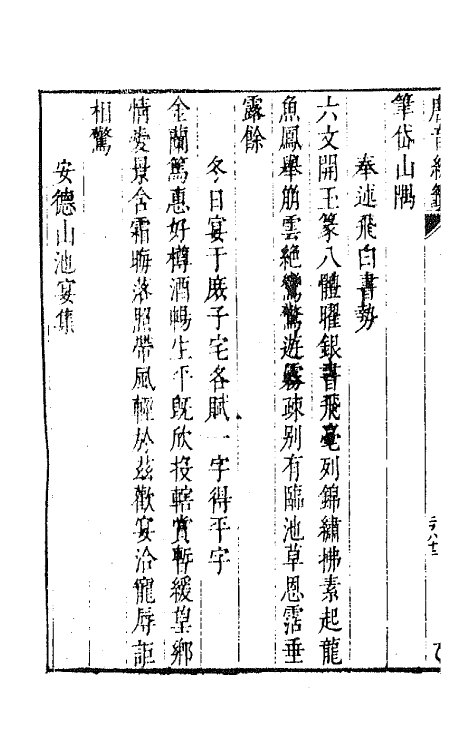 唐音統籤
筆岱山隅
奉述飛白書勢
六文開玉篆八體曜銀書飛毫列錦繡拂素起龍
魚鳳舉崩雲絶鸞驚遊霧疎别有臨池草恩霑垂
露餘
冬日宴于庶子宅各賦一字得平字
金蘭篤惠好樽酒暢生平旣欣投轄賞暫緩望鄉
情愛景含霜晦落照帶風輕於兹歡宴洽寵辱詎
相驚
安德山池宴集